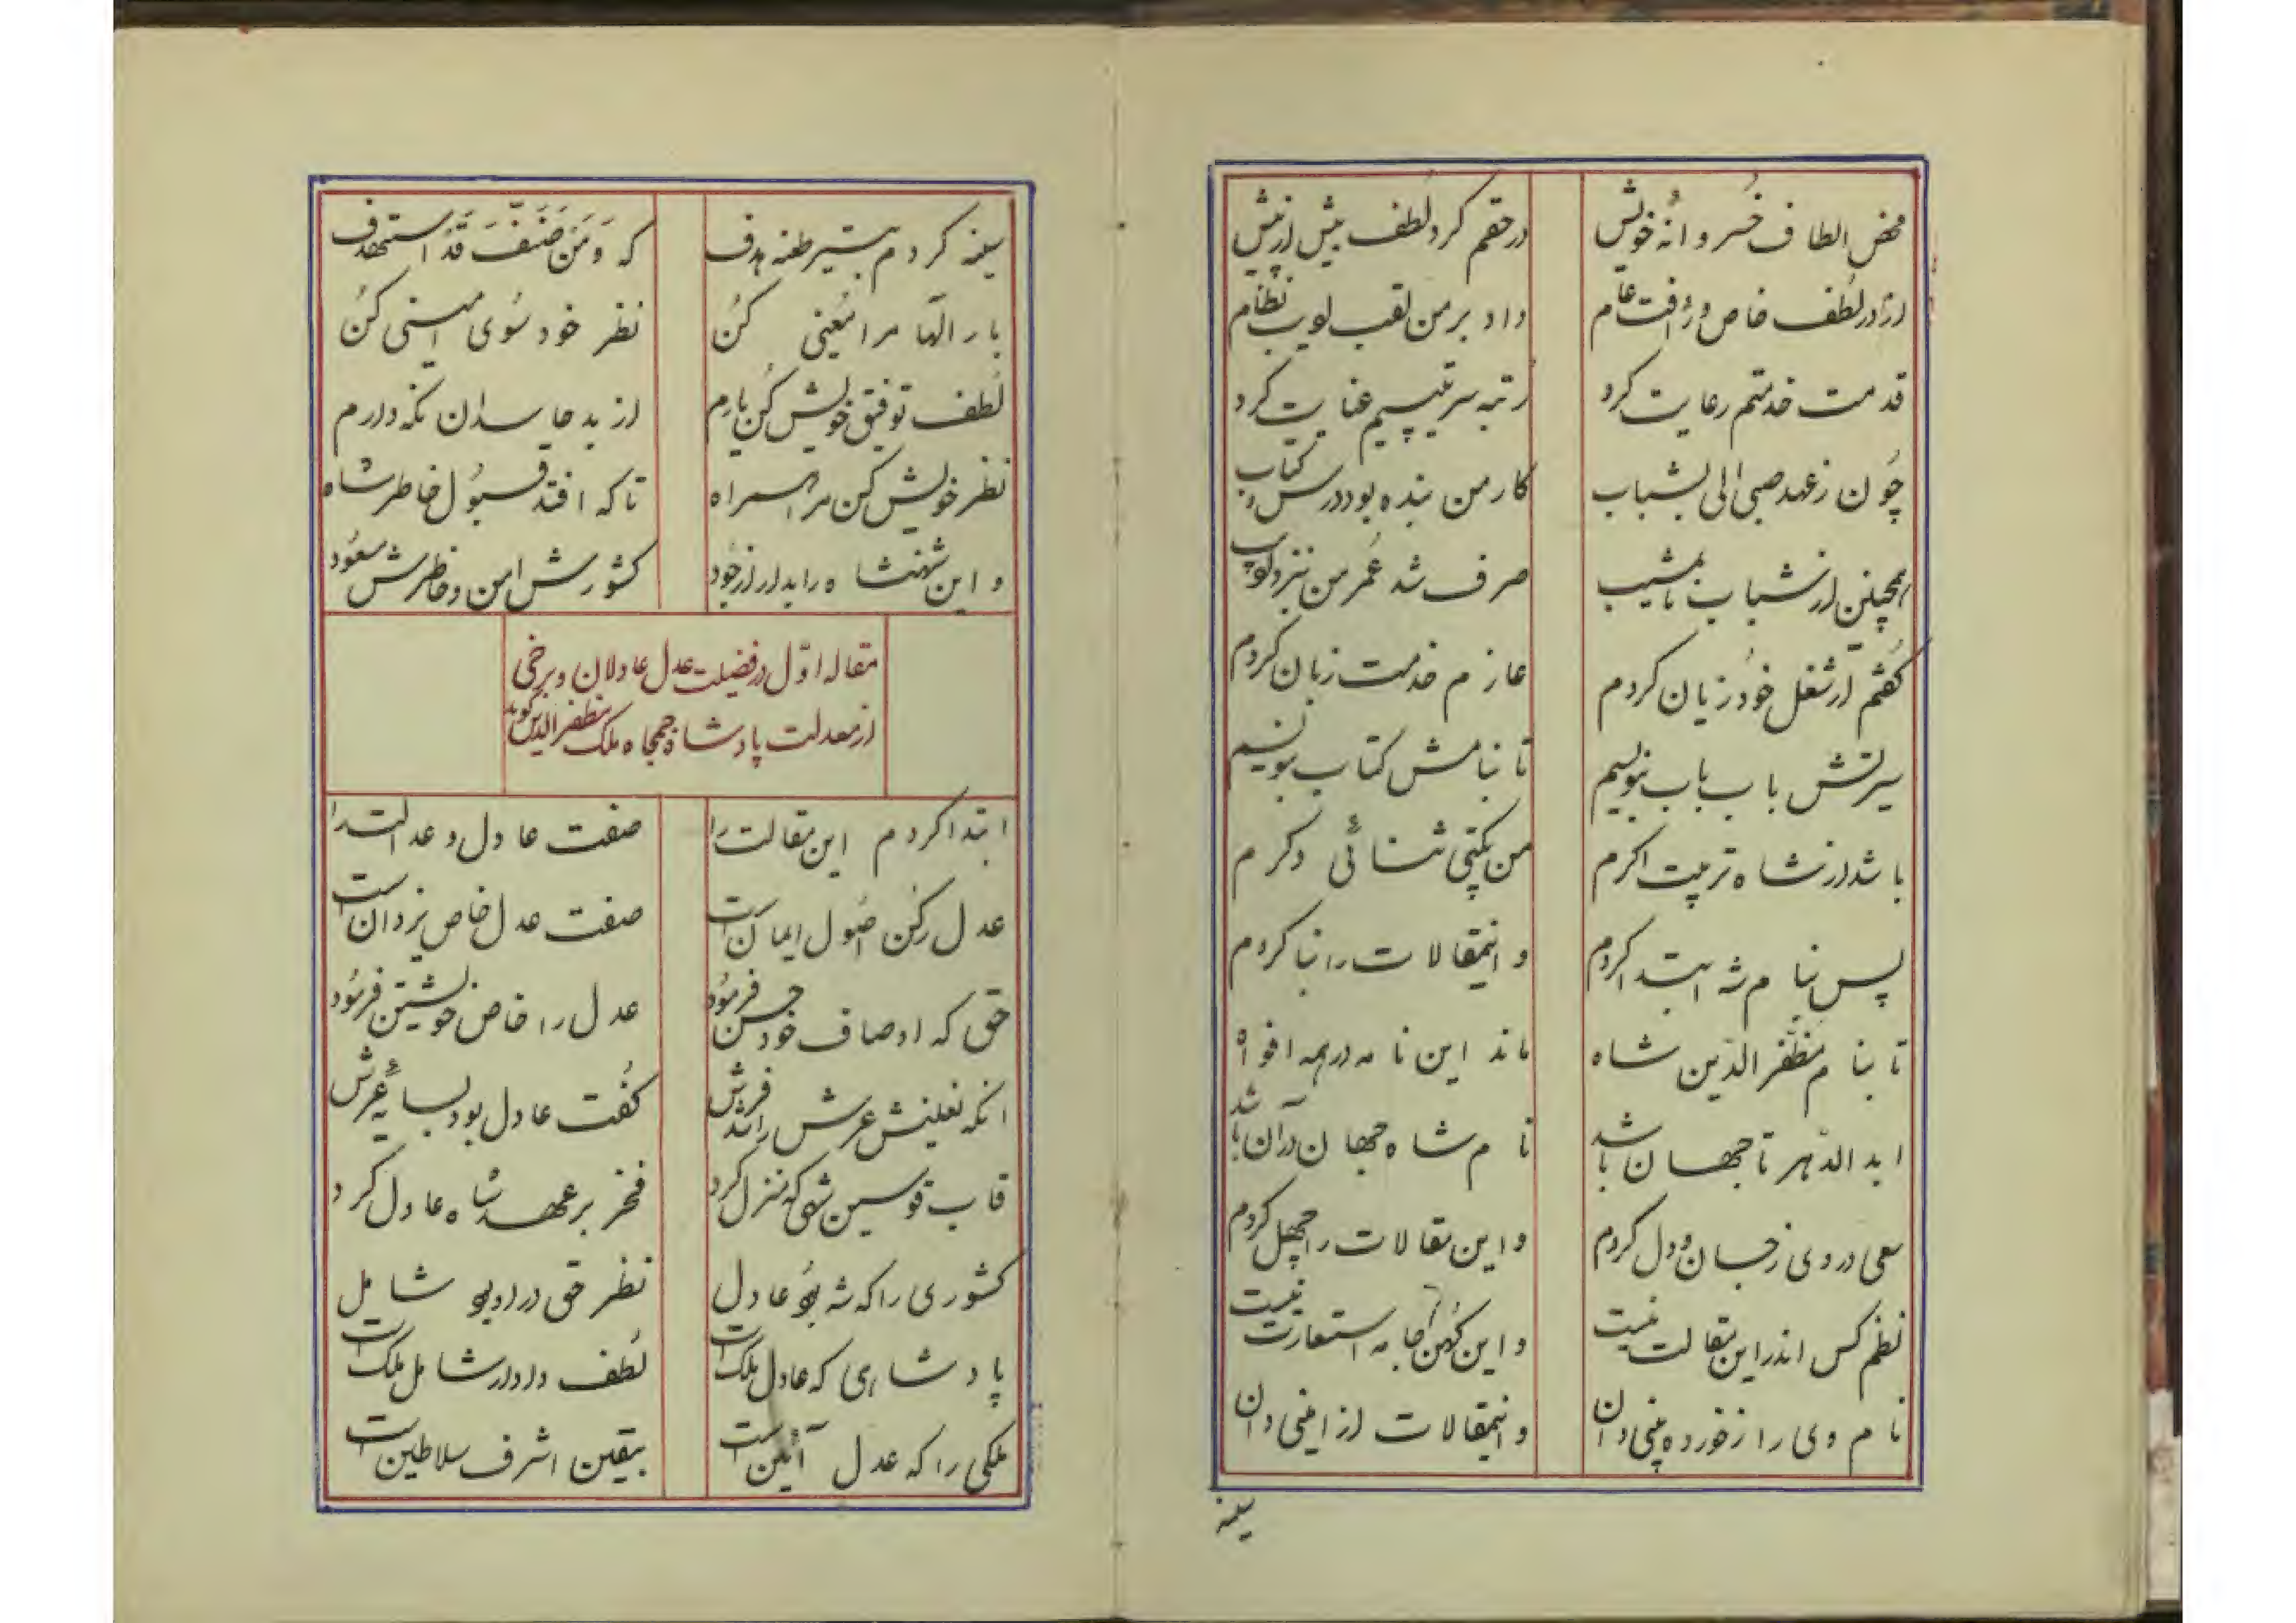 محض الطاف خسروانهٔ خویش	در حقم کرد لطف بیش از پیش
از در لطف خاص و رأفت عام	داد بر من لقب ادیب نظام
قدمت خدمتم رعایت کرد	رتبه سرتیپیم عنایت کرد
چون ز عهد صبی الی بشباب	کار من بنده بود درس و کتاب
همچنین از شباب تا بمشیب	صرف شد عمر من بنزد ادیب
گفتم ار شغل خود زیان کردم	عازم خدمت زبان کردم
سیرتش باب باب بنویسم	تا بنامش کتاب بنویسم
باشد از شاه تربیت اکرم	من یکتی ثنائی و کرم
پس بنام شه ابتدا کردم	و اینمقالات را بنا کردم
تا بنام مظفرالدین شاه	ماند این نامه در همه افواه
ابد الدهر تا جهان باشد	نام شاه جهان در آن باشد
سعی در وی ز جان و دل کردم	و این مقالات را چهل کردم
نظم کس اندر این مقالت نیست	و این کهن جامه استعارت نیست
نام وی را ز خورده بینی دان	و اینمقالات از امینی دان
سینه
سینه کردم بتیر طعنه هدف	که وَمَن صَنَّفَ قَدِ استهدف
بار الٰها مرا معینی کن	نظر خود سوی امینی کن
لطف توفیق خویش کن یارم	از بد حاسدان نگه دارم
نظر خویش کن مرا همراه	تا که افتد قبول خاطر شاه
و این شهنشاه را بدار از جود	کشورش امن و خاطرش مسعود
مقاله اوّل در فضیلت عدل عادلان و برخی
از معدلت پادشاه جمجاه ملک مظفرالدین گوید
ابتدا کردم این مقالت را	صفت عادل و عدالت را
عدل رکن اصول ایمان است	صفت عدل خاص یزدان است
حق که اوصاف خود حسن فرمود	عدل را خاص خویشتن فرمود
آنکه نعلینش عرش را شد فرش	گفت عادل بود بسایهٔ عرش
قاب قوسین شهی که منزل کرد	فخر بر عهد شاه عادل کرد
کشوری را که شه بود عادل	نظر حق در او بود شامل
پادشاهی که عادل ملک است	لطف دادار شامل ملک است
ملکی را که عدل آئین است	بیقین اشرف سلاطین است